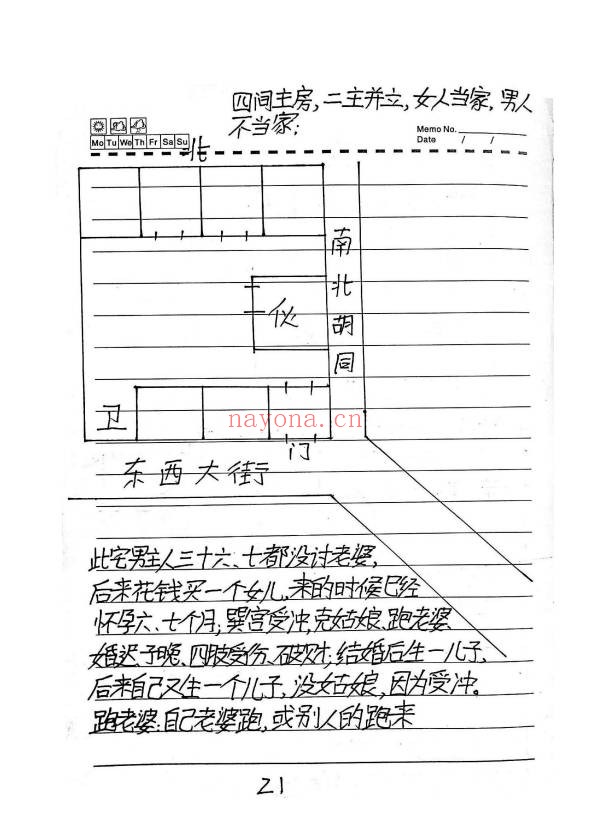 四间主房,二主并立,女人当家,男人
不当家;
Memo No.
Mo Tu We Th Fr Sa Su
Date / /
北
南北胡同
伙
卫
nayona.cn
门
东西大街
此宅男主人三十六、七都没讨老婆,
后来花钱买一个女儿,来的时候已经
怀孕六、七个月;巽宫受冲,克姑娘、跑老婆
婚迟子晚、四肢受伤、破财;结婚后生一儿子、
后来自己又生一个儿子,没姑娘,因为受冲。
跑老婆:自己老婆跑,或别人的跑来
21